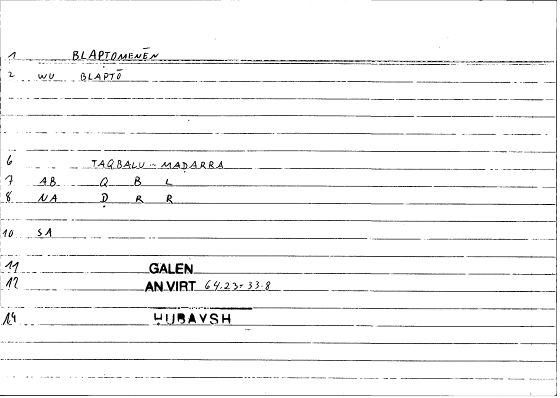 1 BLAPTOMENĒN
2 WU BLAPTŌ
6 TAQBALU-MAḌARRA
7 AB Q B L
8 NA Ḍ R R
10 SA
11 GALEN
12 AN.VIRT 64.23=33.8
14 ḤUBAYSH